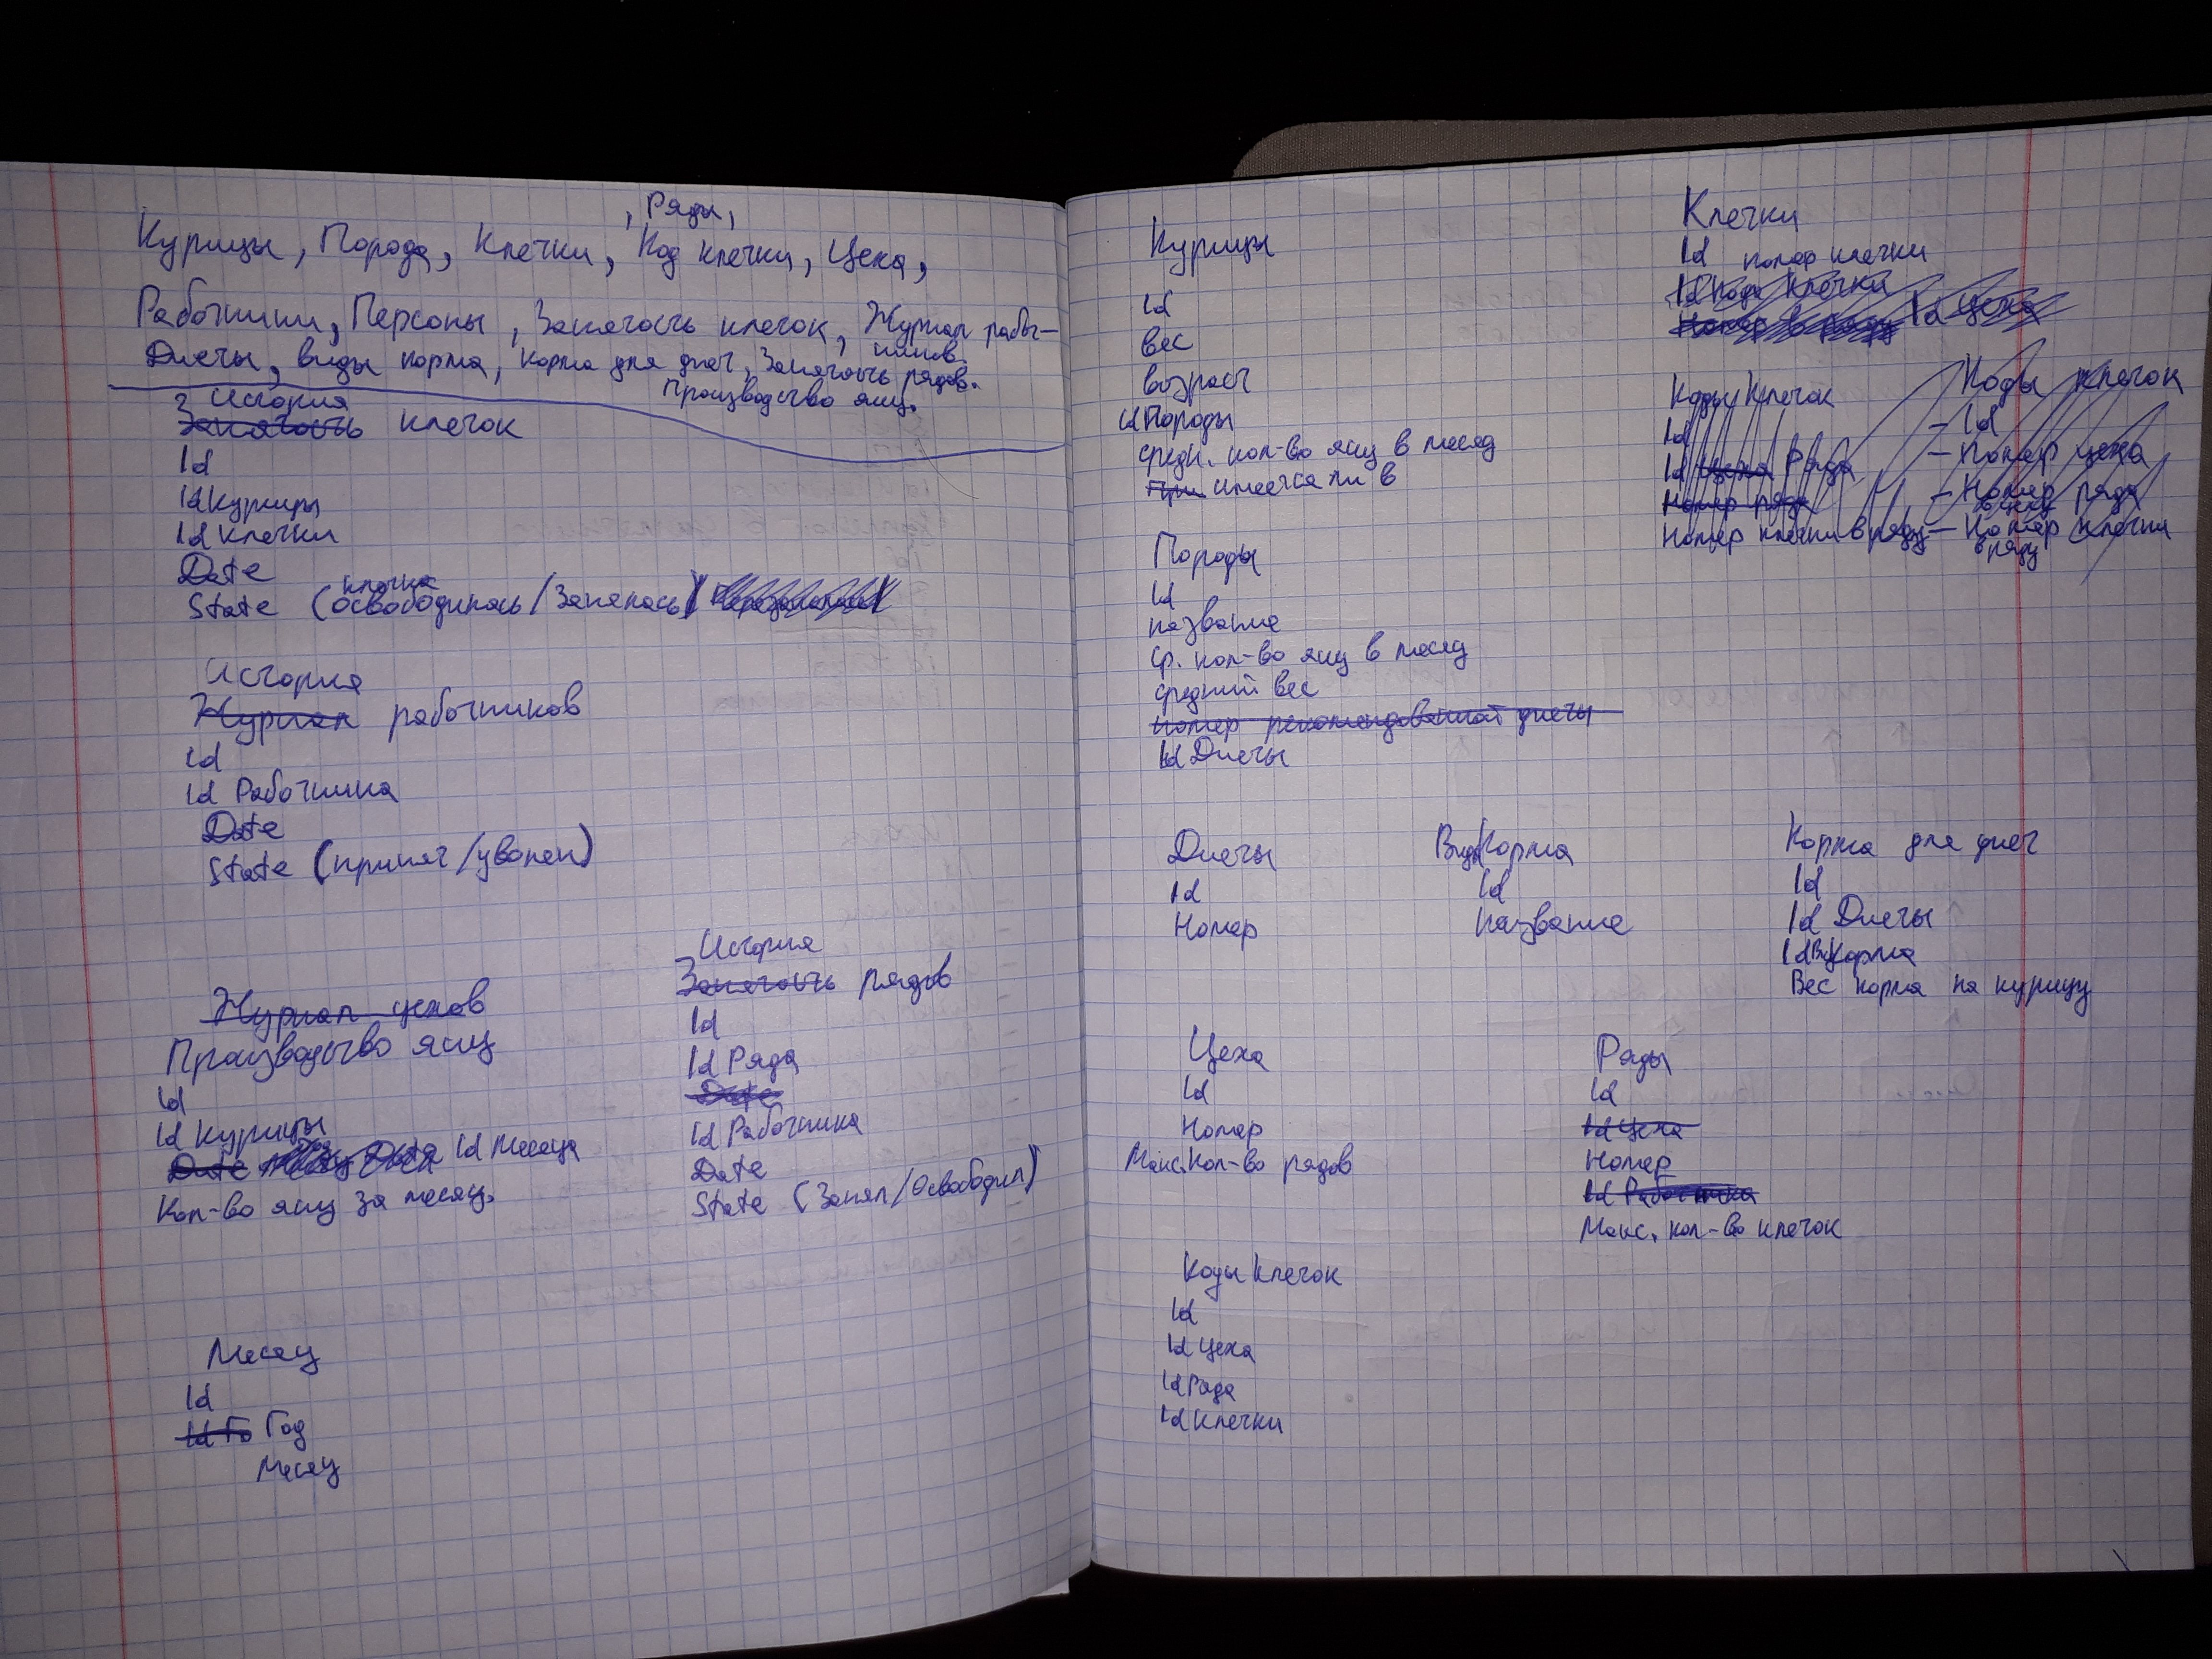 , Ряды,
Курицы, Порода, Клетки, Код клетки, Цеха,
Работники, Персоны, Занятость клеток, Журнал работ-
ников.
Диеты, виды корма, корма для диет, Занятость рядов.
Производство яиц.
История
Занятость клеток
Id
Id Курицы
Id Клетки
Date
клетка
State (освободилась/Занялась)
История
Журнал работников
Id
Id Работника
Date
State (принят/уволен)
Журнал цехов
Производство яиц
Id
Id Курицы
Date Id Месяца
Кол-во яиц за месяц.
История
Занятость рядов
Id
Id Ряда
Date
Id Работника
Date
State (Занял/Освободил)
Месяц
Id
Id Го Год
Месяц
Курицы
Id
вес
возраст
Id Породы
средн. кол-во яиц в месяц
При имеется ли в
Породы
Id
название
Ср. кол-во яиц в месяц
средний вес
номер рекомендованной диеты
Id Диеты
Клетки
Id номер клетки
Id Кода клетки
Id Цеха
Коды Клеток
Id
Id Цеха Ряда
Номер ряда
Номер клетки в ряду
Коды клеток
- Id
- Номер цеха
- Номер ряда
- Номер клетки
в ряду
Диеты
Id
Номер
Виды Корма
Id
Название
Корма для диет
Id
Id Диеты
Id Вид Корма
Вес корма на курицу
Цеха
Id
Номер
Макс. Кол-во рядов
Ряды
Id
Id Цеха
Номер
Id Работника
Макс. кол-во клеток
Коды Клеток
Id
Id Цеха
Id Ряда
Id Клетки